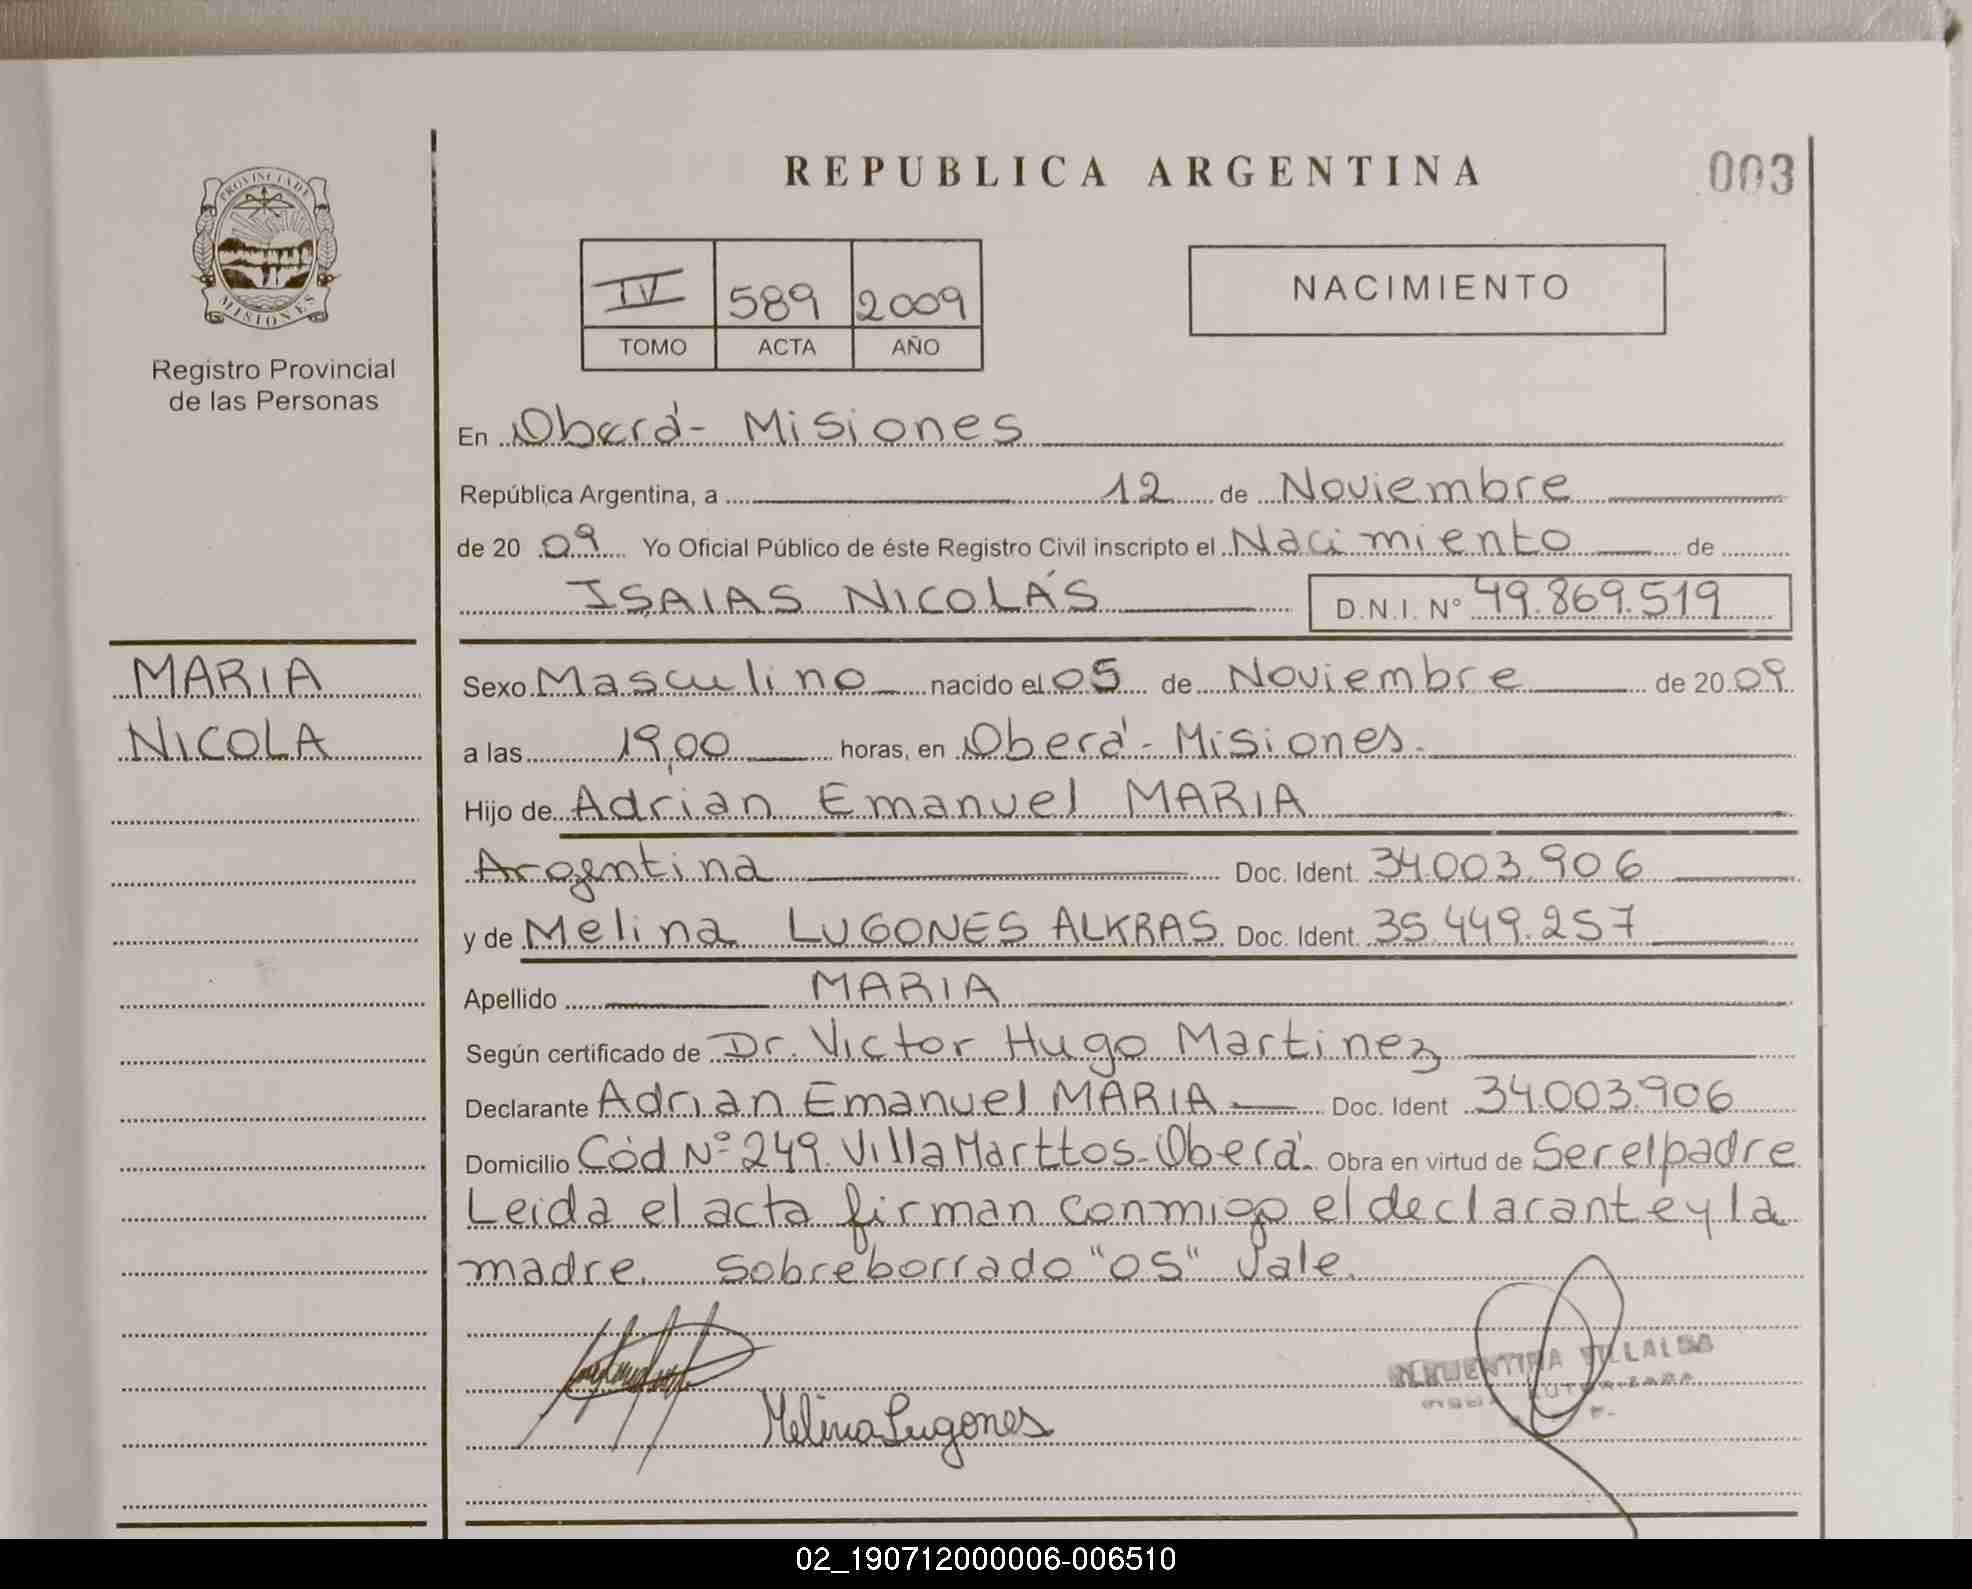 REPUBLICA ARGENTINA
003
PROVINCIA DE
MISIONES
Registro Provincial
de las Personas
IV 589 2009
TOMO ACTA AÑO
NACIMIENTO
En Oberá - Misiones
República Argentina, a 12 de Noviembre
de 20 09 Yo Oficial Público de éste Registro Civil inscripto el Nacimiento de
ISAIAS NICOLÁS D.N.I. N° 49.869.519
MARIA
NICOLA
Sexo Masculino nacido el 05 de Noviembre de 20 09
a las 19,00 horas, en Oberá - Misiones.
Hijo de Adrian Emanuel MARIA
Argentina Doc. Ident. 34.003.906
y de Melina LUGONES ALKRAS Doc. Ident. 35.449.257
Apellido MARIA
Según certificado de Dr. Victor Hugo Martinez
Declarante Adrian Emanuel MARIA Doc. Ident 34.003.906
Domicilio Cód Nº 249. Villa Marttos - Oberá. Obra en virtud de Ser el padre
Leida el acta firman conmigo el declarante y la
madre. Sobreborrado "05" Vale.
Melina Lugones
VILLALBA
02_190712000006-006510